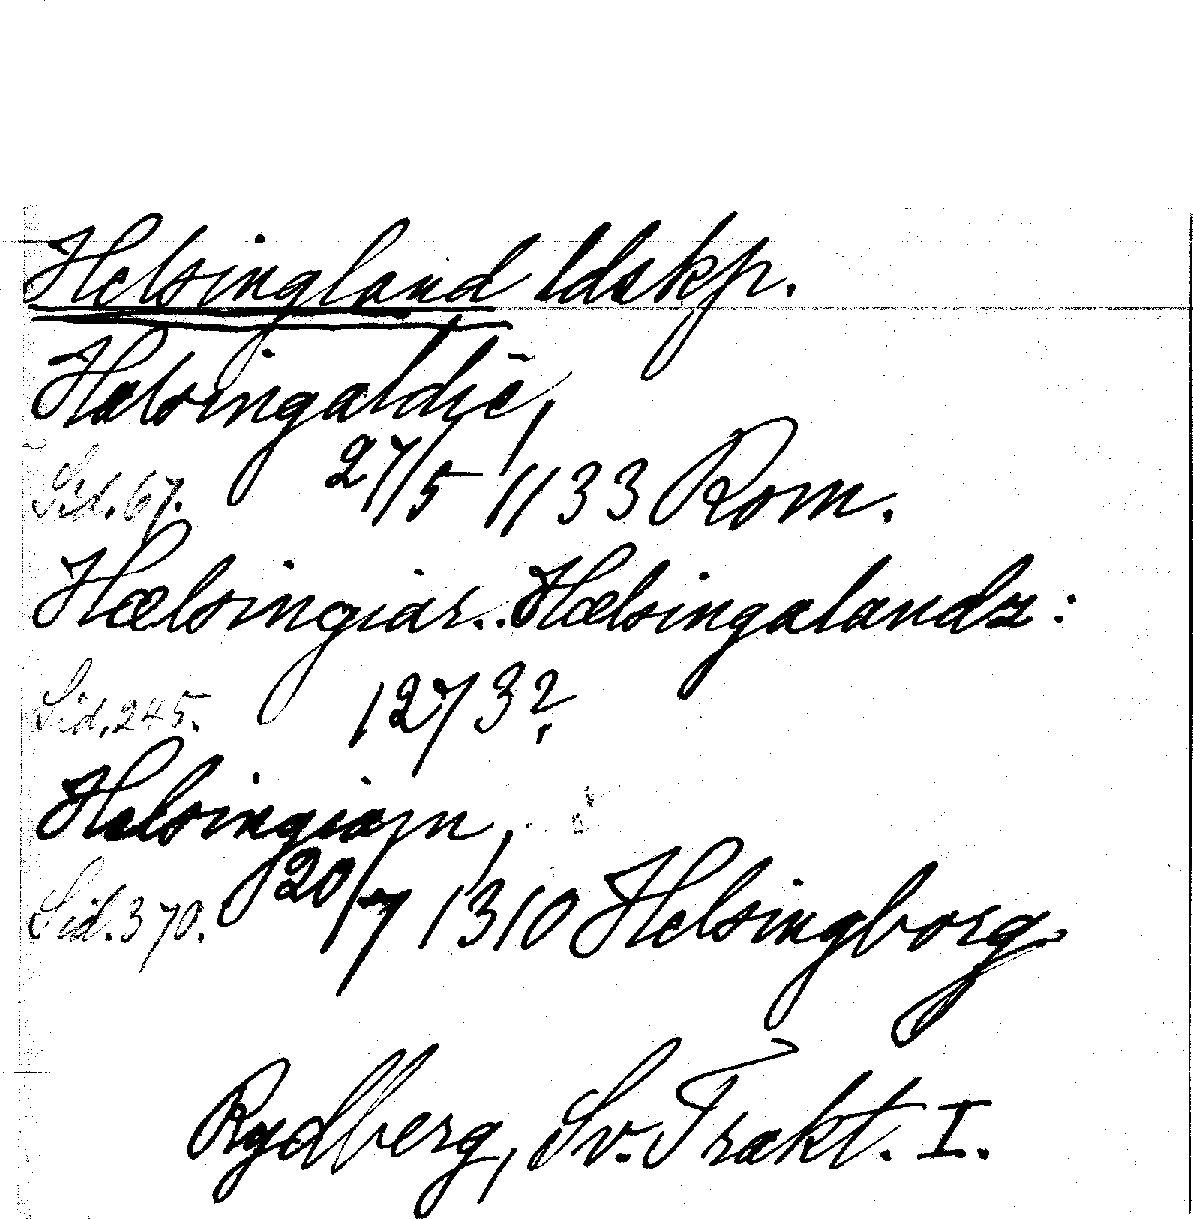 Helsingland ldskp.
Hælsingaldiē,
Sid. 67. 27/5 1133 Rom.
Hælsingiar..Hælsingalandz:
Sid. 245. 1273?
Helsingiam,
Sid. 370. 20/7 1310 Helsingborg
Rydberg, Sv. Trakt. I.